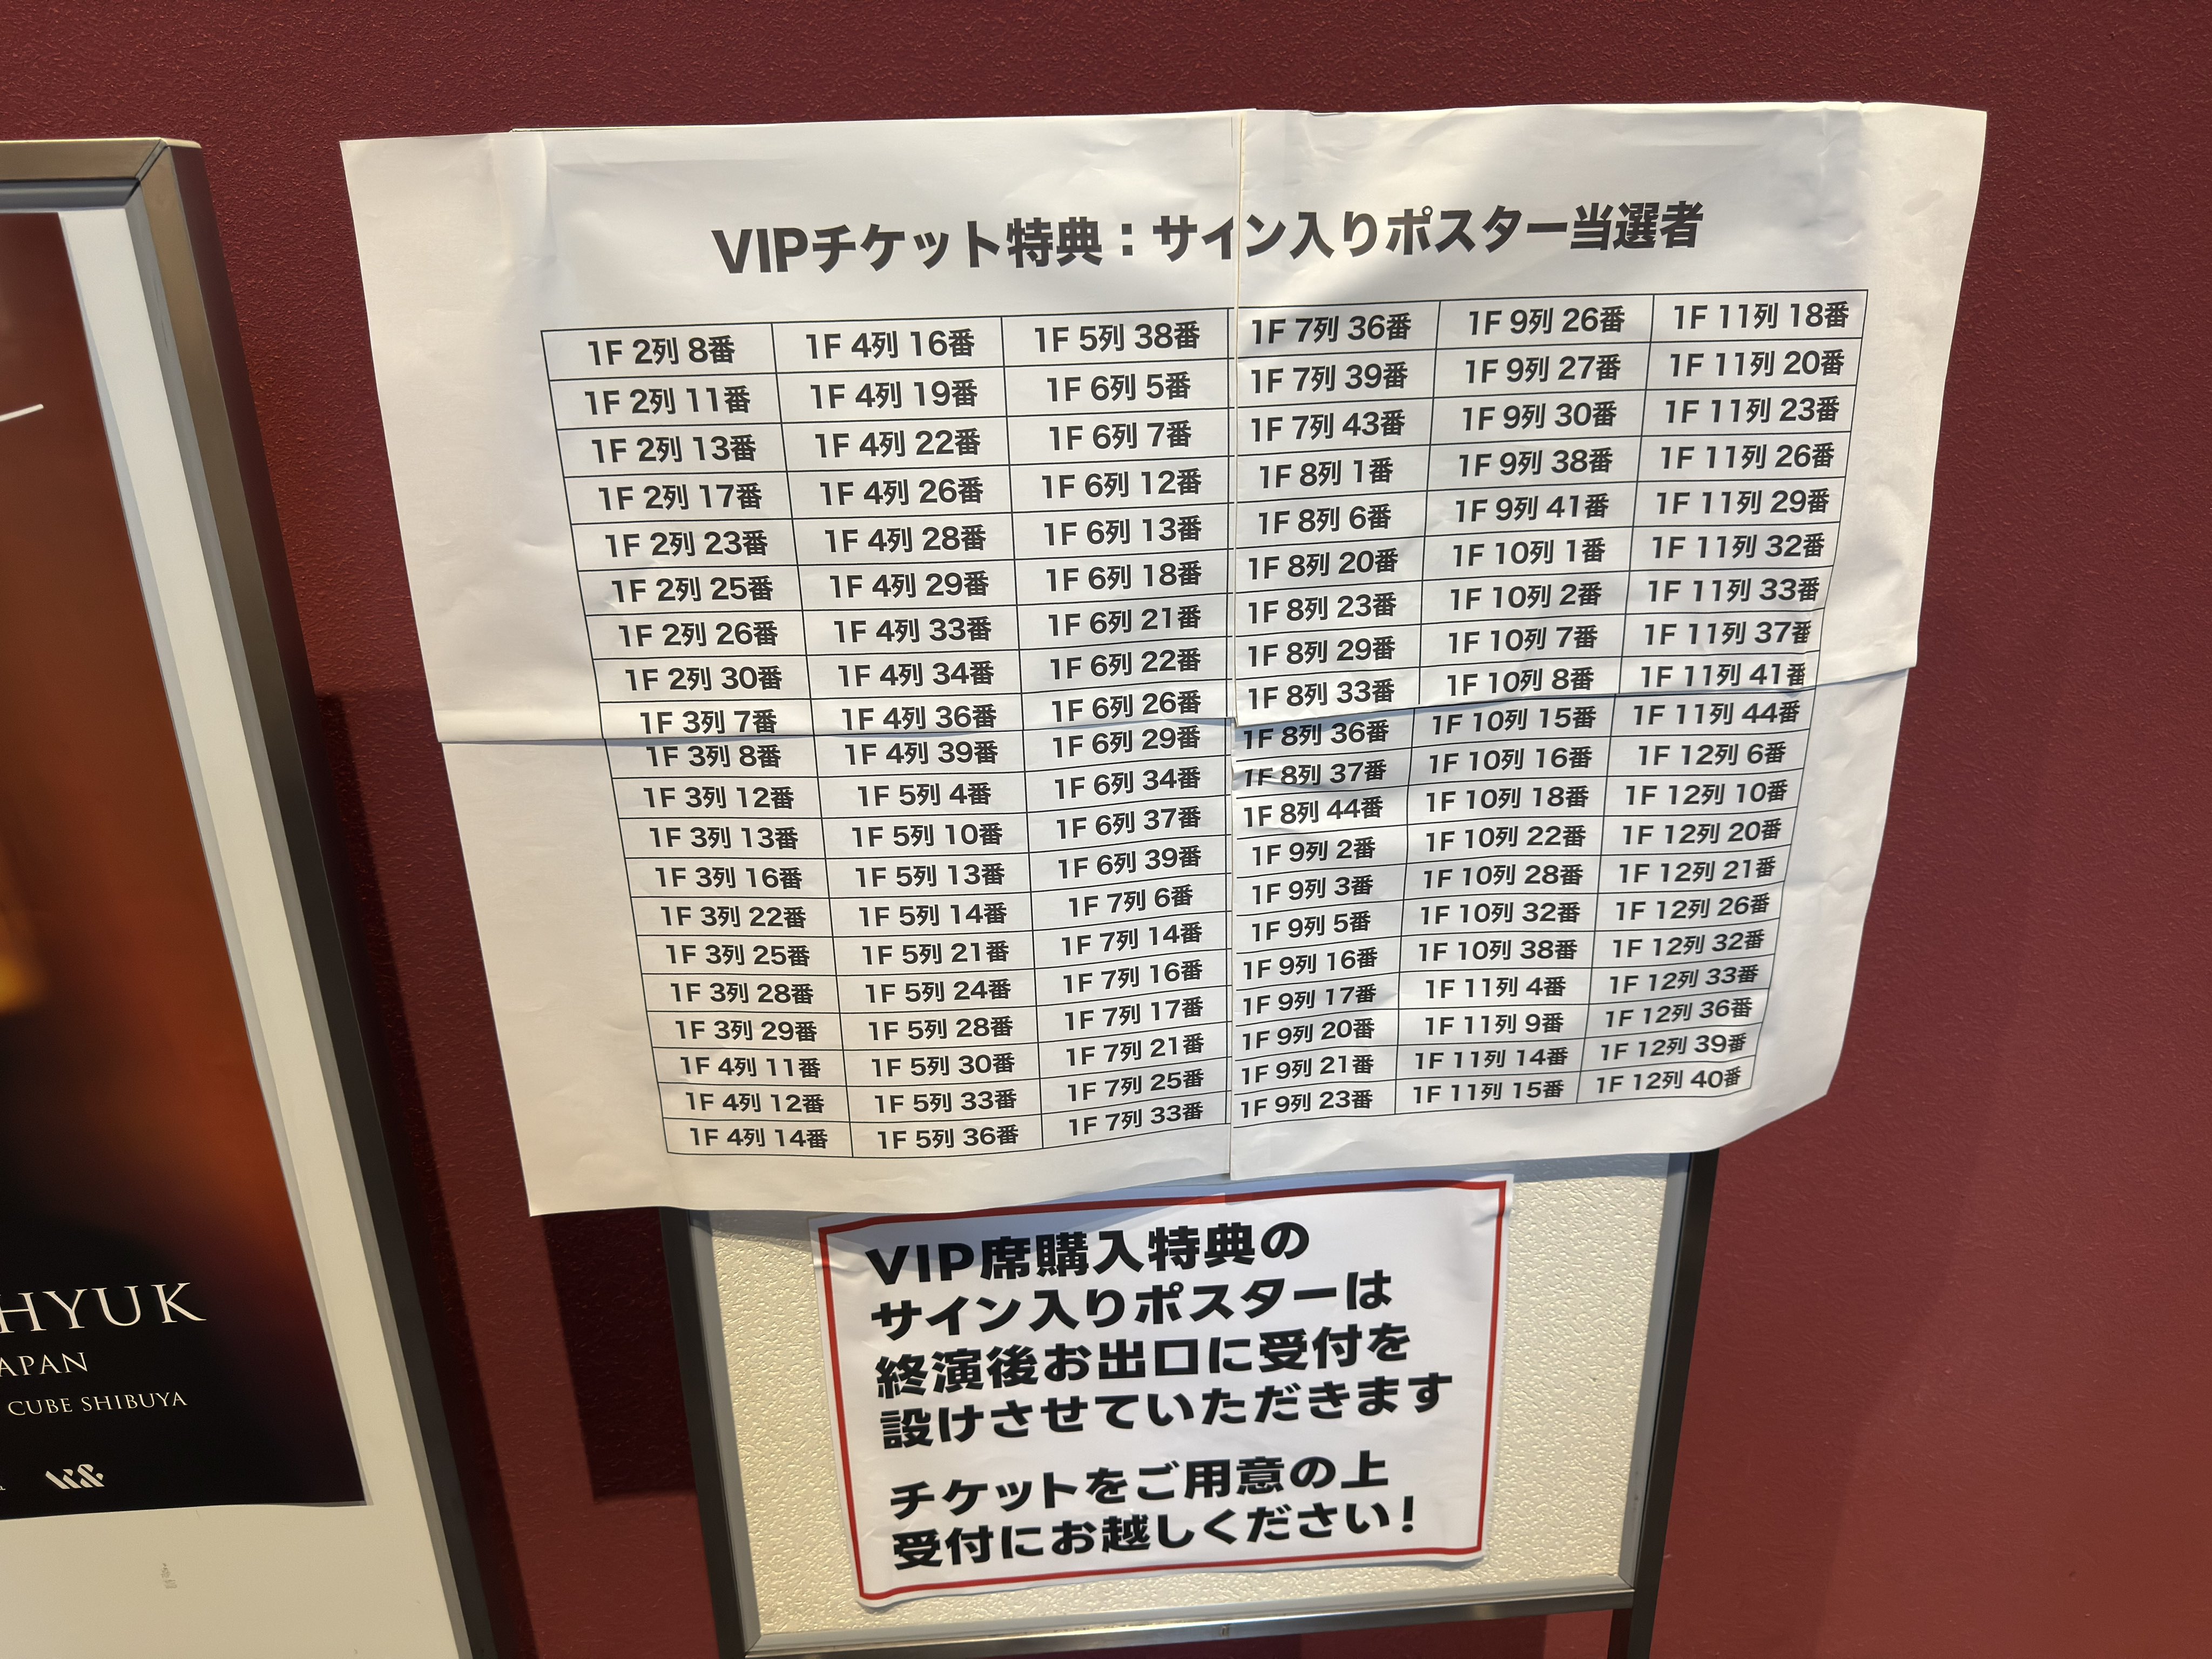 VIPチケット特典：サイン入りポスター当選者
1F 2列 8番 1F 4列 16番 1F 5列 38番 1F 7列 36番 1F 9列 26番 1F 11列 18番
1F 2列 11番 1F 4列 19番 1F 6列 5番 1F 7列 39番 1F 9列 27番 1F 11列 20番
1F 2列 13番 1F 4列 22番 1F 6列 7番 1F 7列 43番 1F 9列 30番 1F 11列 23番
1F 2列 17番 1F 4列 26番 1F 6列 12番 1F 8列 1番 1F 9列 38番 1F 11列 26番
1F 2列 23番 1F 4列 28番 1F 6列 13番 1F 8列 6番 1F 9列 41番 1F 11列 29番
1F 2列 25番 1F 4列 29番 1F 6列 18番 1F 8列 20番 1F 10列 1番 1F 11列 32番
1F 2列 26番 1F 4列 33番 1F 6列 21番 1F 8列 23番 1F 10列 2番 1F 11列 33番
1F 2列 30番 1F 4列 34番 1F 6列 22番 1F 8列 29番 1F 10列 7番 1F 11列 37番
1F 3列 7番 1F 4列 36番 1F 6列 26番 1F 8列 33番 1F 10列 8番 1F 11列 41番
1F 3列 8番 1F 4列 39番 1F 6列 29番 1F 8列 36番 1F 10列 15番 1F 11列 44番
1F 3列 12番 1F 5列 4番 1F 6列 34番 1F 8列 37番 1F 10列 16番 1F 12列 6番
1F 3列 13番 1F 5列 10番 1F 6列 37番 1F 8列 44番 1F 10列 18番 1F 12列 10番
1F 3列 16番 1F 5列 13番 1F 6列 39番 1F 9列 2番 1F 10列 22番 1F 12列 20番
1F 3列 22番 1F 5列 14番 1F 7列 6番 1F 9列 3番 1F 10列 28番 1F 12列 21番
1F 3列 25番 1F 5列 21番 1F 7列 14番 1F 9列 5番 1F 10列 32番 1F 12列 26番
1F 3列 28番 1F 5列 24番 1F 7列 16番 1F 9列 16番 1F 10列 38番 1F 12列 32番
1F 3列 29番 1F 5列 28番 1F 7列 17番 1F 9列 17番 1F 11列 4番 1F 12列 33番
1F 4列 11番 1F 5列 30番 1F 7列 21番 1F 9列 20番 1F 11列 9番 1F 12列 36番
1F 4列 12番 1F 5列 33番 1F 7列 25番 1F 9列 21番 1F 11列 14番 1F 12列 39番
1F 4列 14番 1F 5列 36番 1F 7列 33番 1F 9列 23番 1F 11列 15番 1F 12列 40番
VIP席購入特典の
サイン入りポスターは
終演後お出口に受付を
設けさせていただきます
チケットをご用意の上
受付にお越しください！
HYUK
APAN
CUBE SHIBUYA